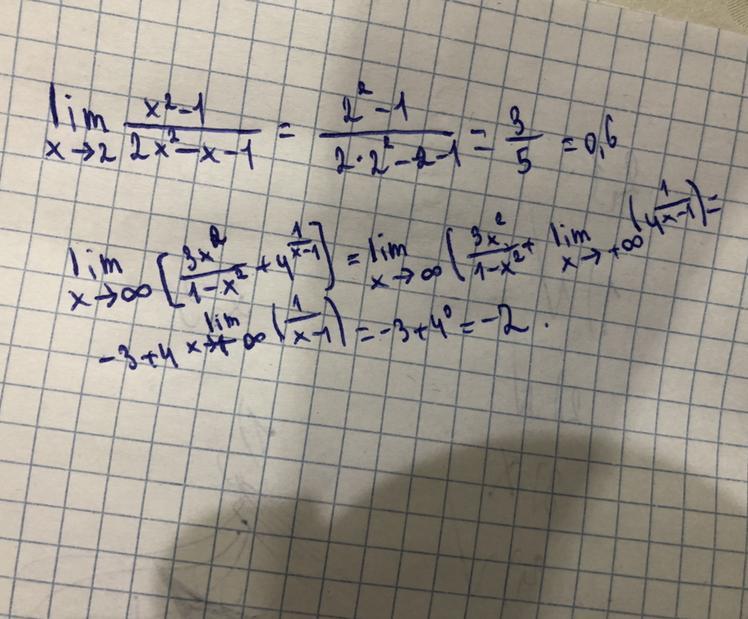 lim x→2 (x²-1)/(2x²-x-1) = (2²-1)/(2·2²-2-1) = 3/5 = 0,6
lim x→∞ [3x²/(1-x²) + 4^(1/(x-1))] = lim x→∞ (3x²/(1-x²) + lim x→+∞ (4^(1/(x-1))) =
-3+4^(lim x→+∞ (1/(x-1))) = -3+4⁰ = -2.